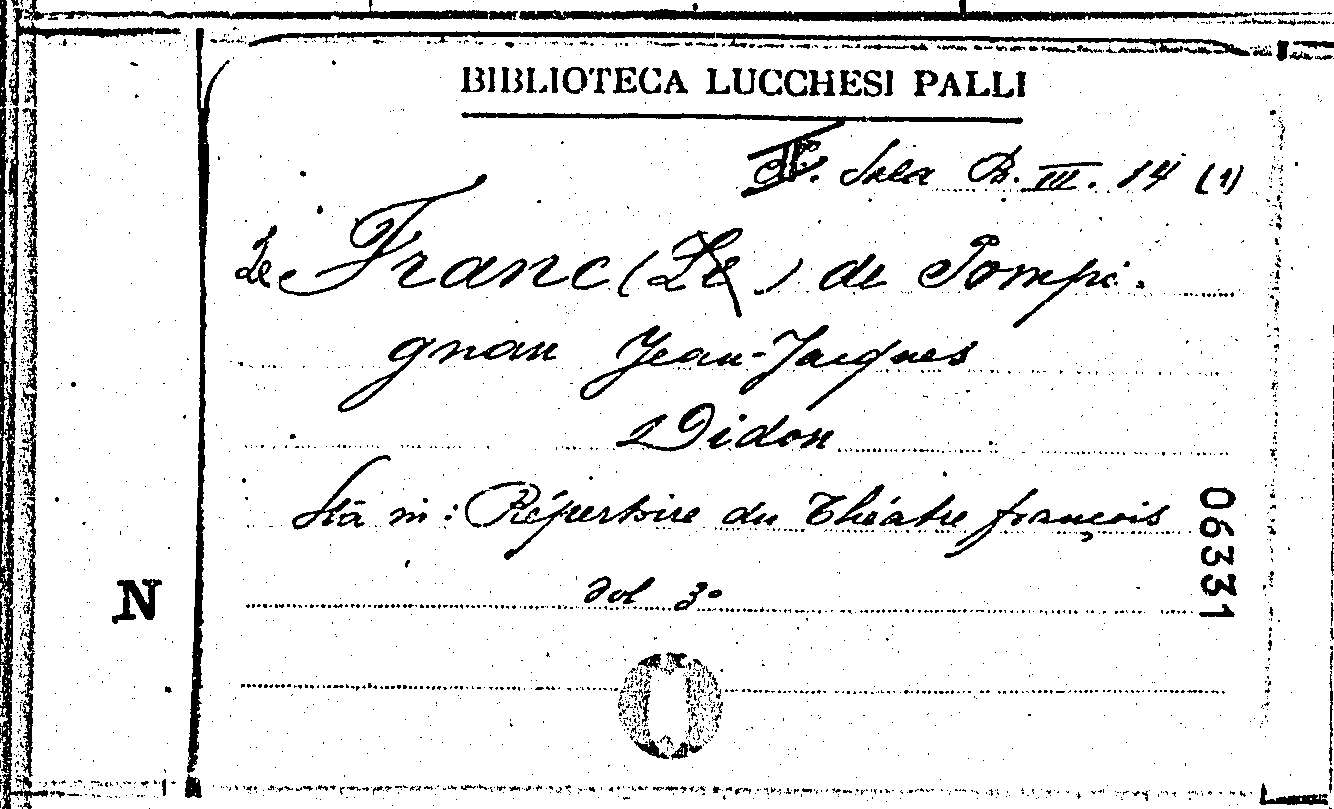 BIBLIOTECA LUCCHESI PALLI
Sala B. III. 14 (1)
Le Franc (Le) de Pompi-
gnan Jean-Jacques
Didon
Sta in: Répertoire du Théatre françois
vol 3º
06331
N